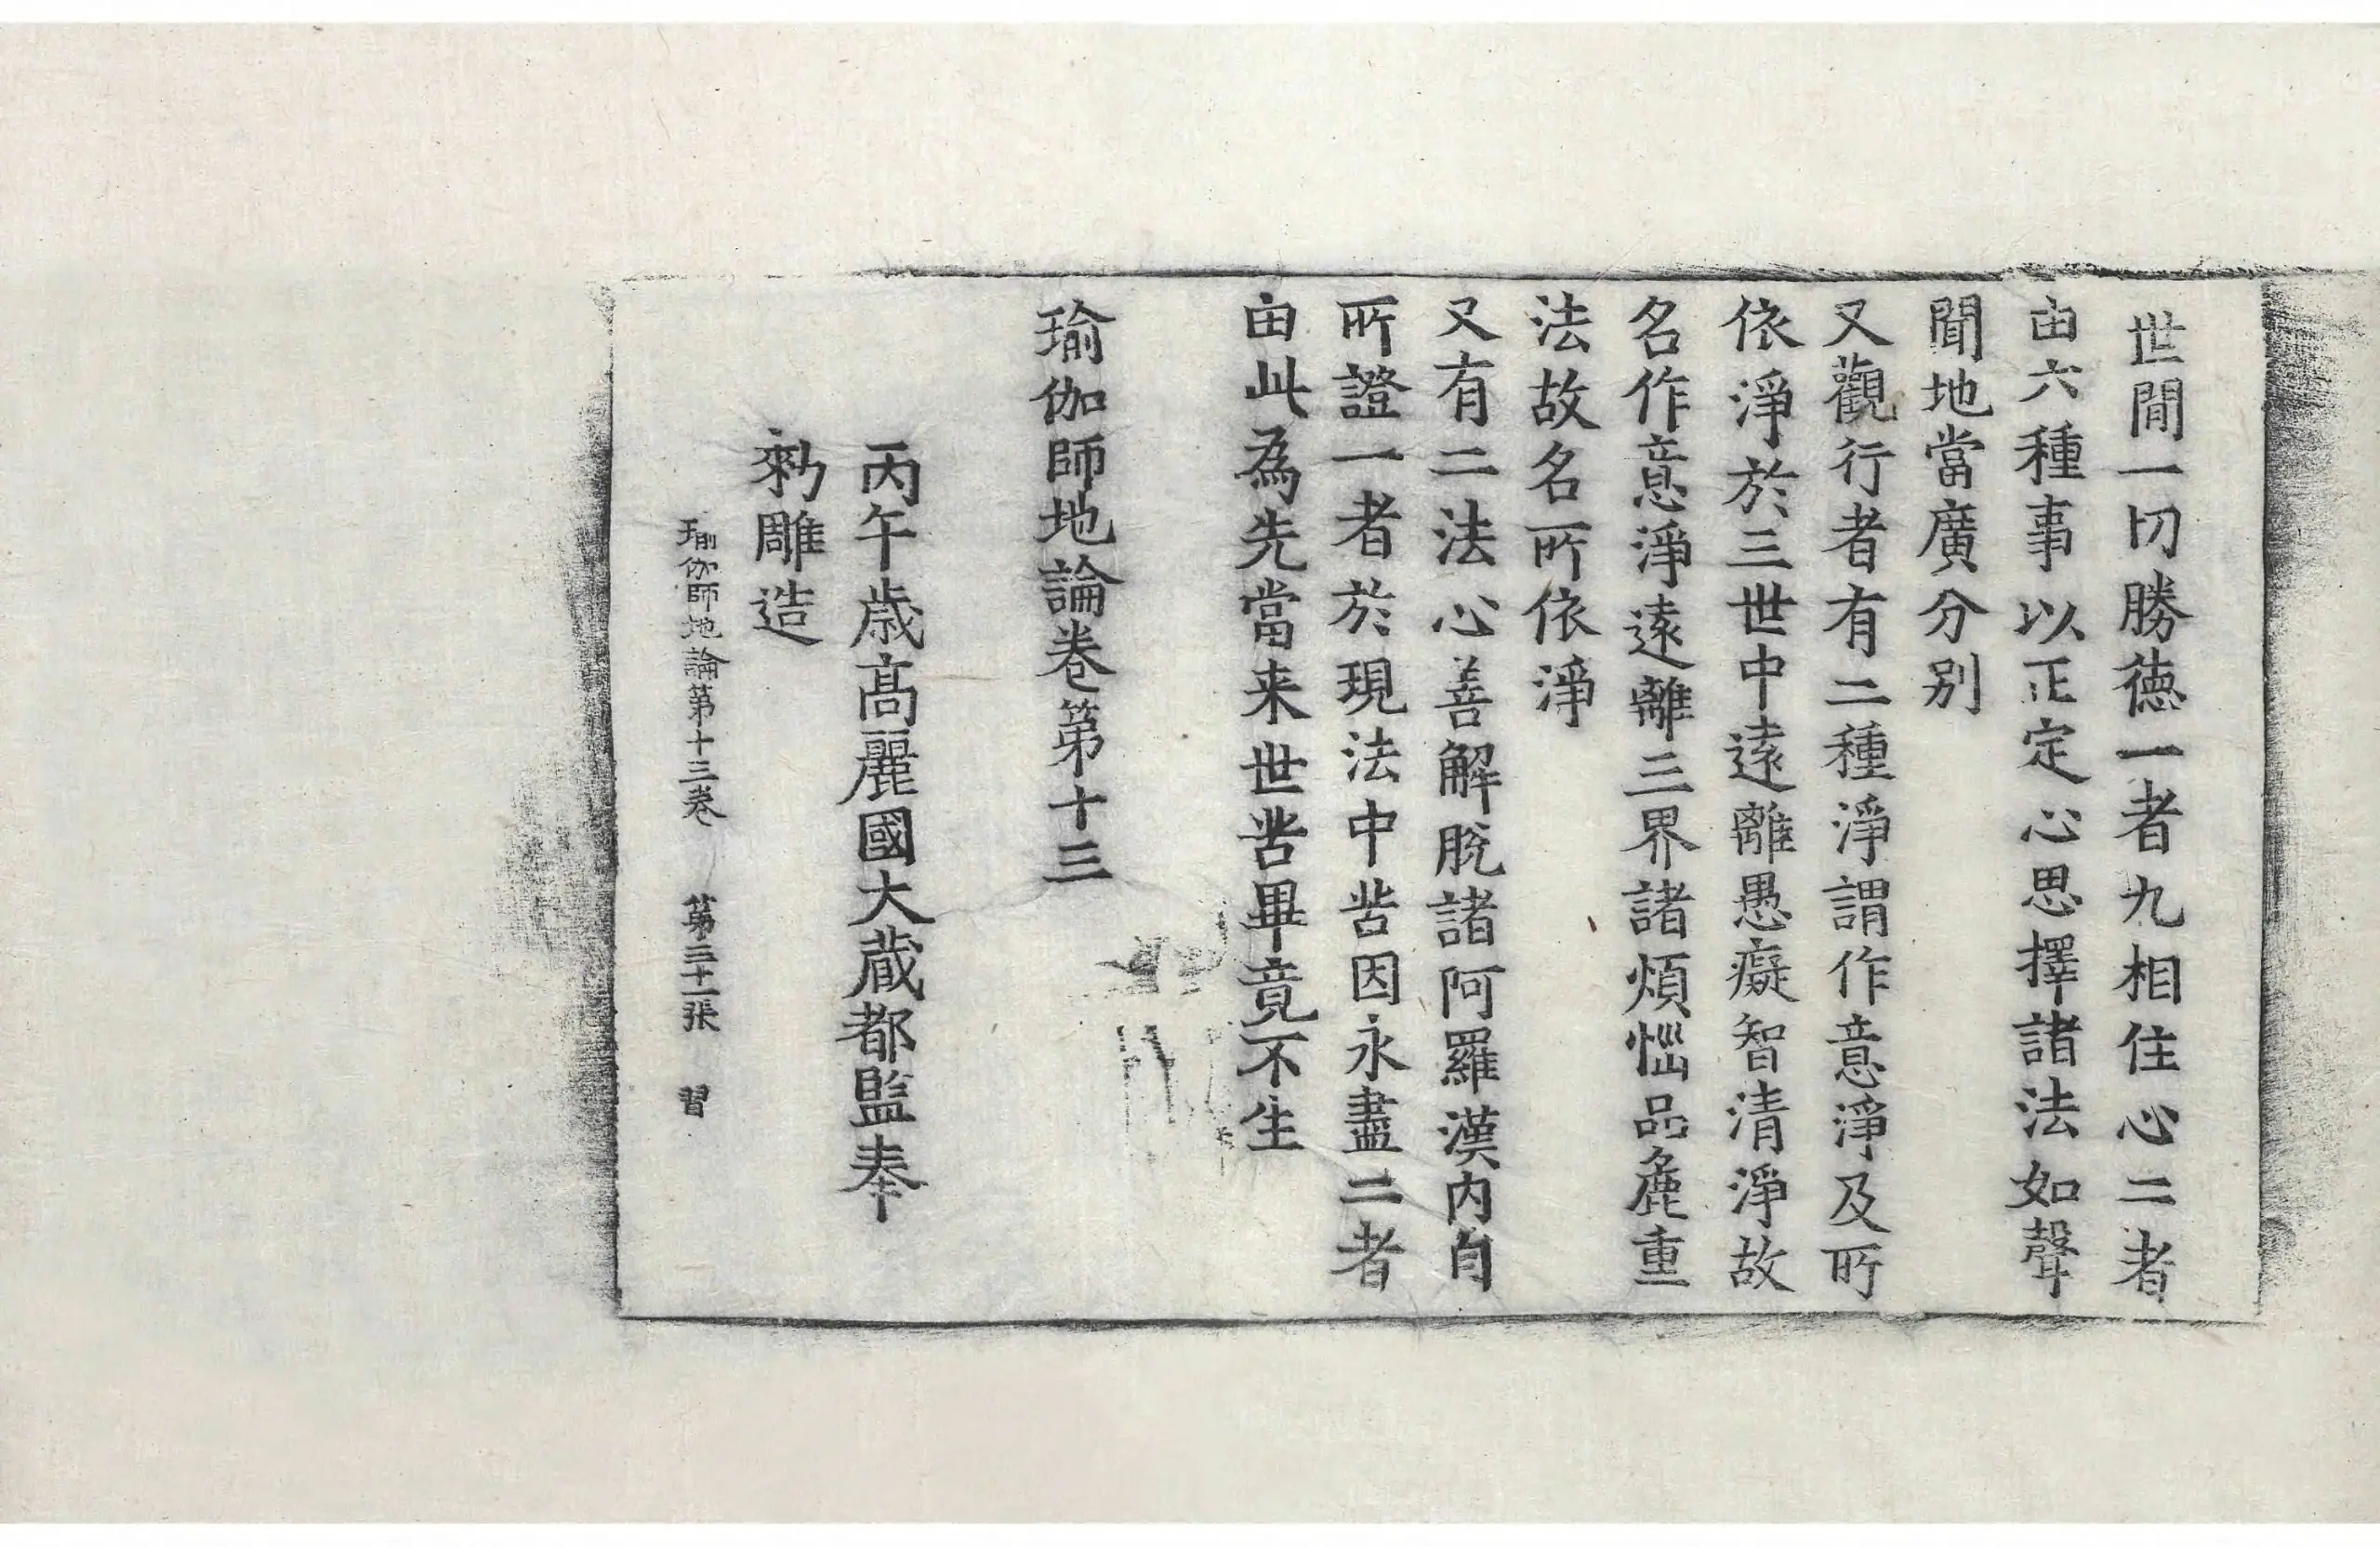 世間一切勝德一者九相住心二者
由六種事以正定心思擇諸法如聲
聞地當廣分别
又觀行者有二種淨謂作意淨及所
依淨於三世中遠離愚癡智清淨故
名作意淨遠離三界諸煩惱品麁重
法故名所依淨
又有二法心善解脫諸阿羅漢内自
所證一者於現法中苦因永盡二者
由此為先當来世苦畢竟不生
瑜伽師地論卷第十三
丙午歳高麗國大藏都監奉
勑雕造
瑜伽師地論第十三卷 第三十一張 習